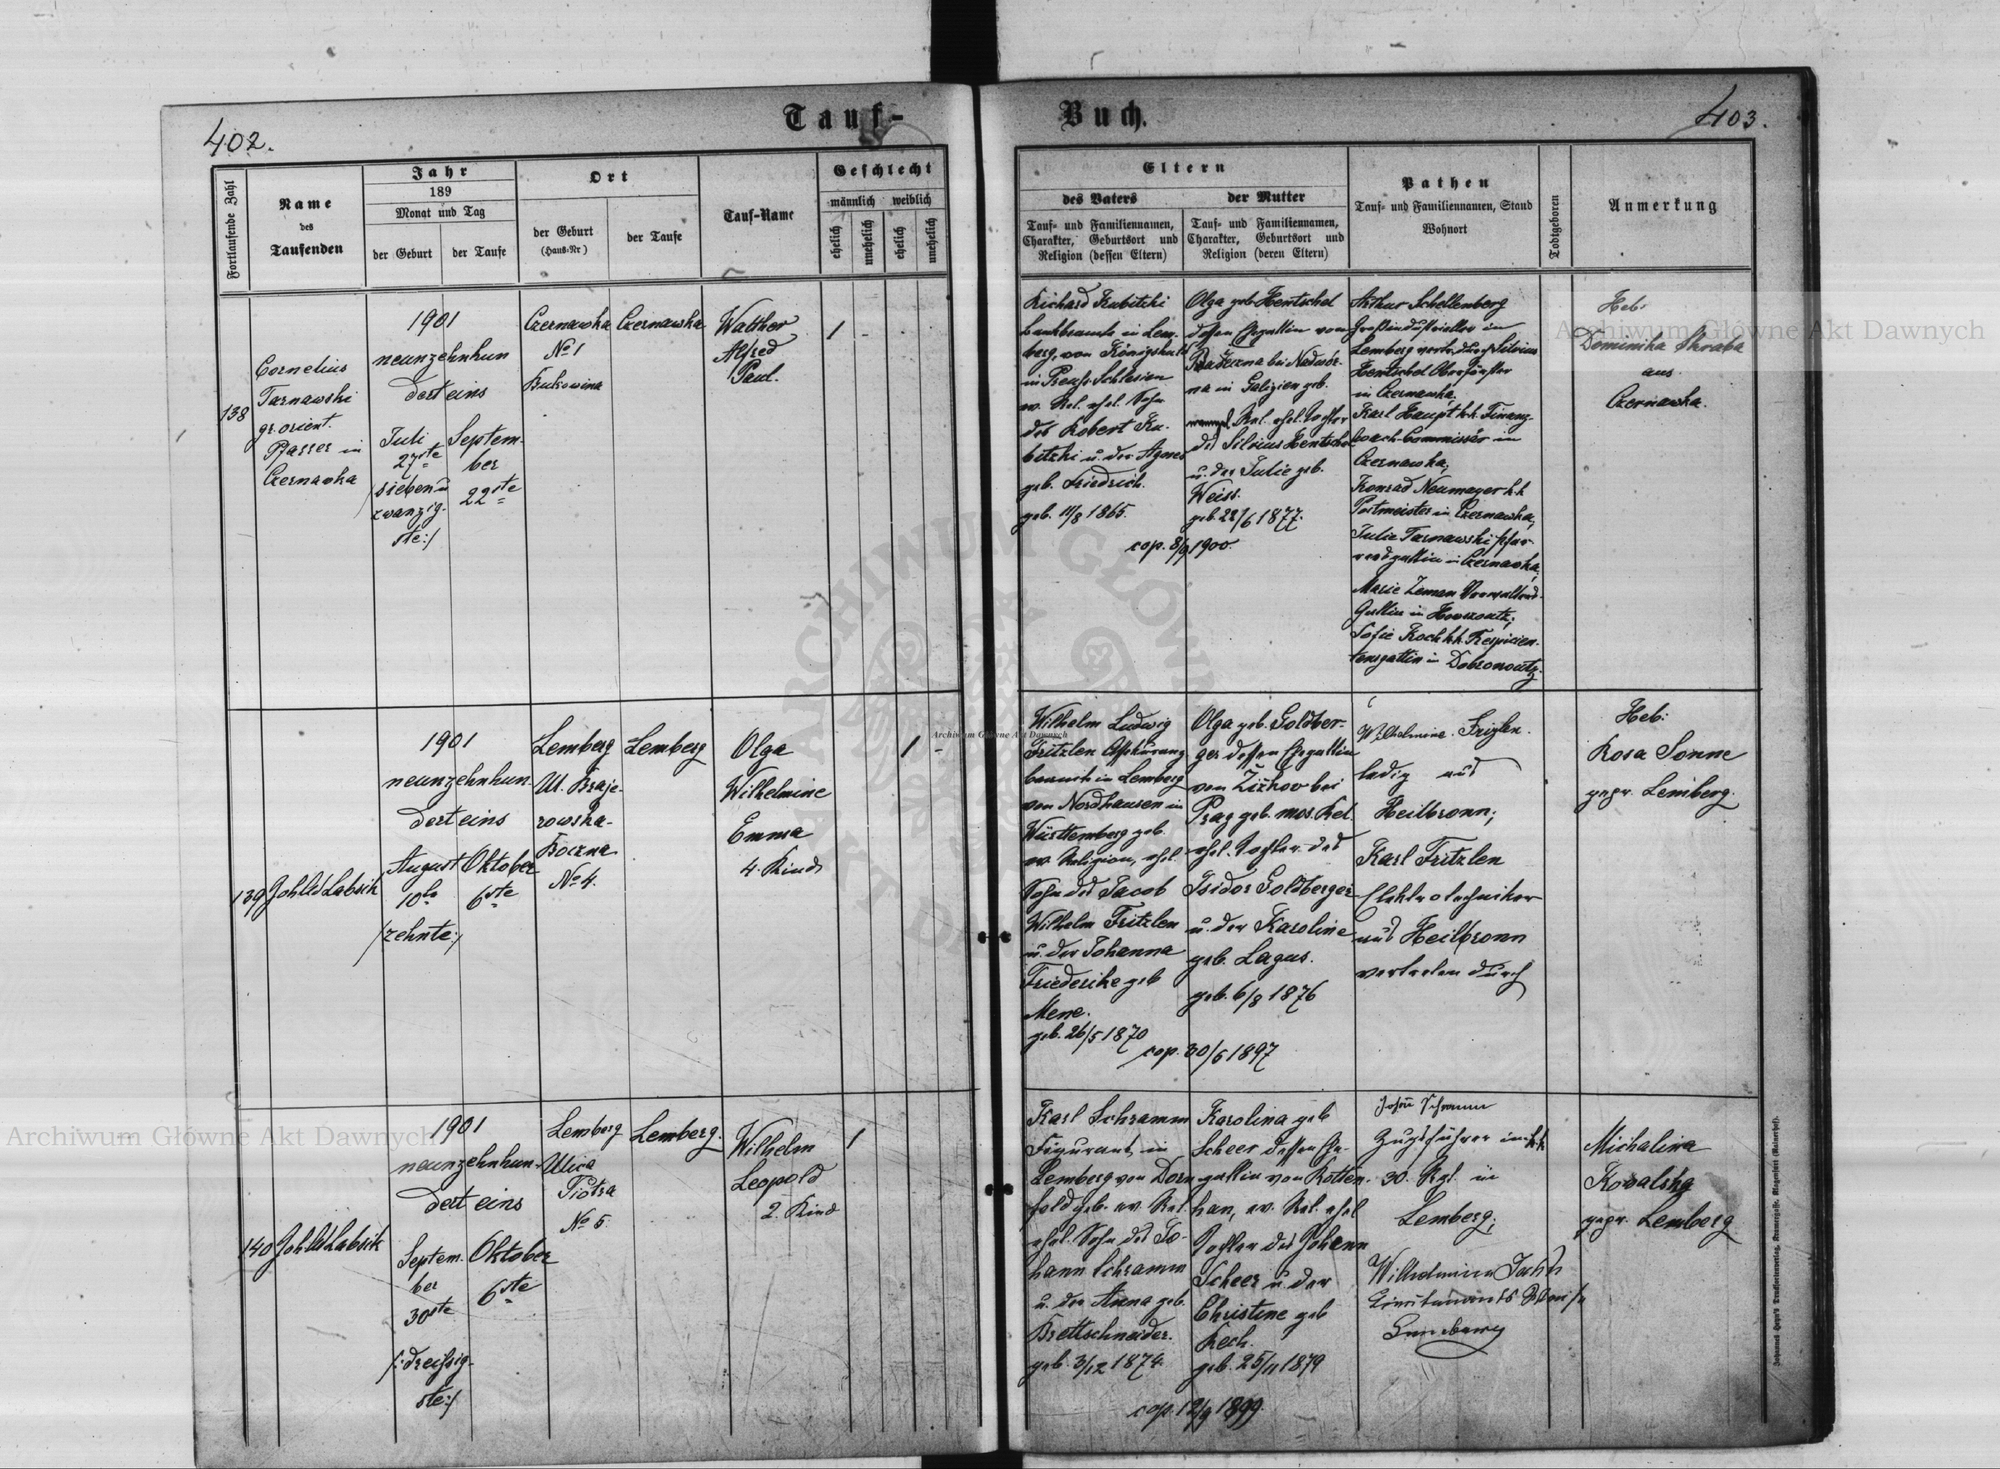 402.
Tauf-
Buch.
403.
Fortlaufende Zahl
Name
des
Taufenden
Jahr
189
Monat und Tag
der Geburt
der Taufe
Ort
der Geburt
(Haus-Nr)
der Taufe
Tauf-Name
Geschlecht
männlich
weiblich
ehelich
unehelich
ehelich
unehelich
Eltern
des Vaters
Tauf- und Familiennamen,
Charakter, Geburtsort und
Religion (dessen Eltern)
der Mutter
Tauf- und Familiennamen,
Charakter, Geburtsort und
Religion (deren Eltern)
Pathen
Tauf- und Familiennamen, Stand
Wohnort
Todtgeboren
Anmerkung
138
Cornelius
Tarnawski
gr. orient.
Pfarrer in
Czernawka
1901
neunzehnhun
dert eins
Juli
27ste
/sieben u
zwanzig-
ste:/
Septem-
ber
22ste
Czernawka
No 1
Bukowina
Czernawka
Walther
Alfred
Paul.
1
-
Richard Kubitzki
Bankbeamte in Lem
berg, von Königshütte
in Preuss. Schlesien
ev. Rel. ehel. Sohn
des Robert Ku-
bitzki u. der Agnes
geb. Friedrich.
geb. 11/8 1865.
Olga geb. Hentschel
dessen Ehegattin von
bei Nadwór-
na in Galizien geb.
Rel. ehel. Tochter
des Silvius Hentschel
u. der Julie geb.
Weiss.
geb. 28/6 1877.
cop. 8/9 1900.
Arthur Schellenberg
Großindustrieller in
Lemberg vertr. durch Silvius
Hentschel Oberförster
in Czernawka,
Karl Haupt k.k. Finanz-
wach-Commissär in
Czernawka;
Konrad Neumayer k.k.
Postmeister in Czernawka,
Julie Tarnawski Pfar-
rersgattin in Czernawka,
Marie Zeman Verwalters-
Gattin in
Sofie Koch k.k. Respicien-
tensgattin in Dobronoutz.
Heb:
Dominika Skraba
aus
Czernawka.
139
Joh Ld Labsik
1901
neunzehnhun-
dert eins
August
10te
/zehnte:/
Oktober
6ste
Lemberg
Ul. Braje-
rowska-
Boczna
No 4.
Lemberg
Olga
Wilhelmine
Emma
4. Kind
1
-
Wilhelm Ludwig
Fritzlen Assekuranz
beamte in Lemberg
von Nordhausen in
Württemberg geb.
ev. Religion, ehel.
Sohn des Jacob
Wilhelm Fritzlen
u. der Johanna
Friederike geb
Mene.
geb. 26/5 1870
Olga geb. Goldber-
ger dessen Ehegattin
von Žižkov bei
Prag geb. mos. Rel.
ehel. Tochter des
Isidor Goldberger
u. der Karoline
geb. Lagus.
geb. 6/8 1876
cop. 30/6 1897
Wilhelmine Frizlen.
ledig aus
Heilbronn;
Karl Fritzlen
Elektrotechniker
aus Heilbronn
vertreten durch
Heb:
Rosa Sonne
gepr. Lemberg.
140
Joh Ld Labsik
1901
neunzehnhun-
dert eins
Septem-
ber
30ste
/:dreissig-
ste:/
Oktober
6ste
Lemberg
Ulica
Piotra
No 5
Lemberg.
Wilhelm
Leopold
2. Kind
1
Karl Schramm
Figurant in
Lemberg von Dorn
feld geb. ev. Rel.
ehel. Sohn des Jo-
hann Schramm
u. der Anna geb.
Brettschneider.
geb. 3/12 1874.
Karolina geb
Scheer dessen Ehe-
gattin von Rotten-
han, ev. Rel. ehel
Tochter des Johann
Scheer u. der
Christine geb
Kech.
geb. 25/11 1879
cop. 12/9 1899.
Johann Schramm
Zugsführer im k.k.
30. Rgt. in
Lemberg;
Wilhelmine
Lemberg
Michalina
Kowalska
gepr. Lemberg
Archiwum Główne Akt Dawnych
Archiwum Główne Akt Dawnych
Archiwum Główne Akt Dawnych